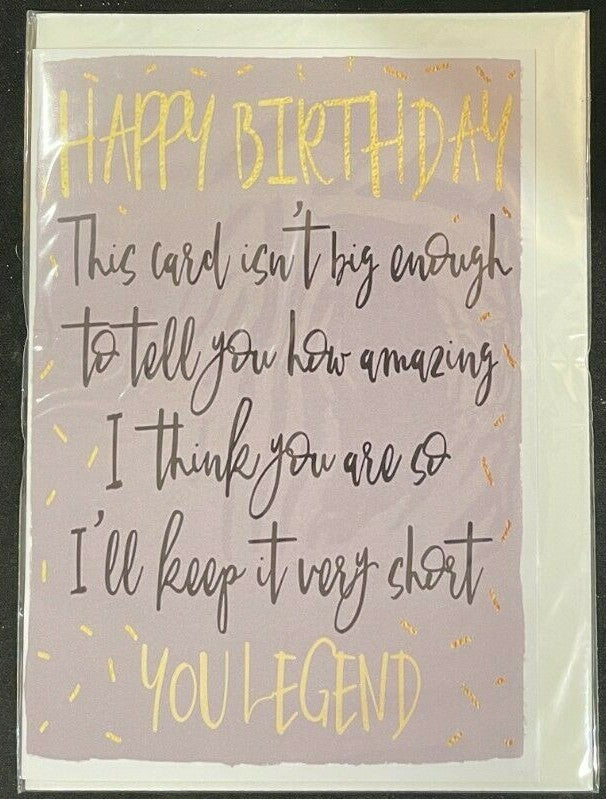 HAPPY BIRTHDAY
This card isn't big enough
to tell you how amazing
I think you are so
I'll keep it very short
YOU LEGEND